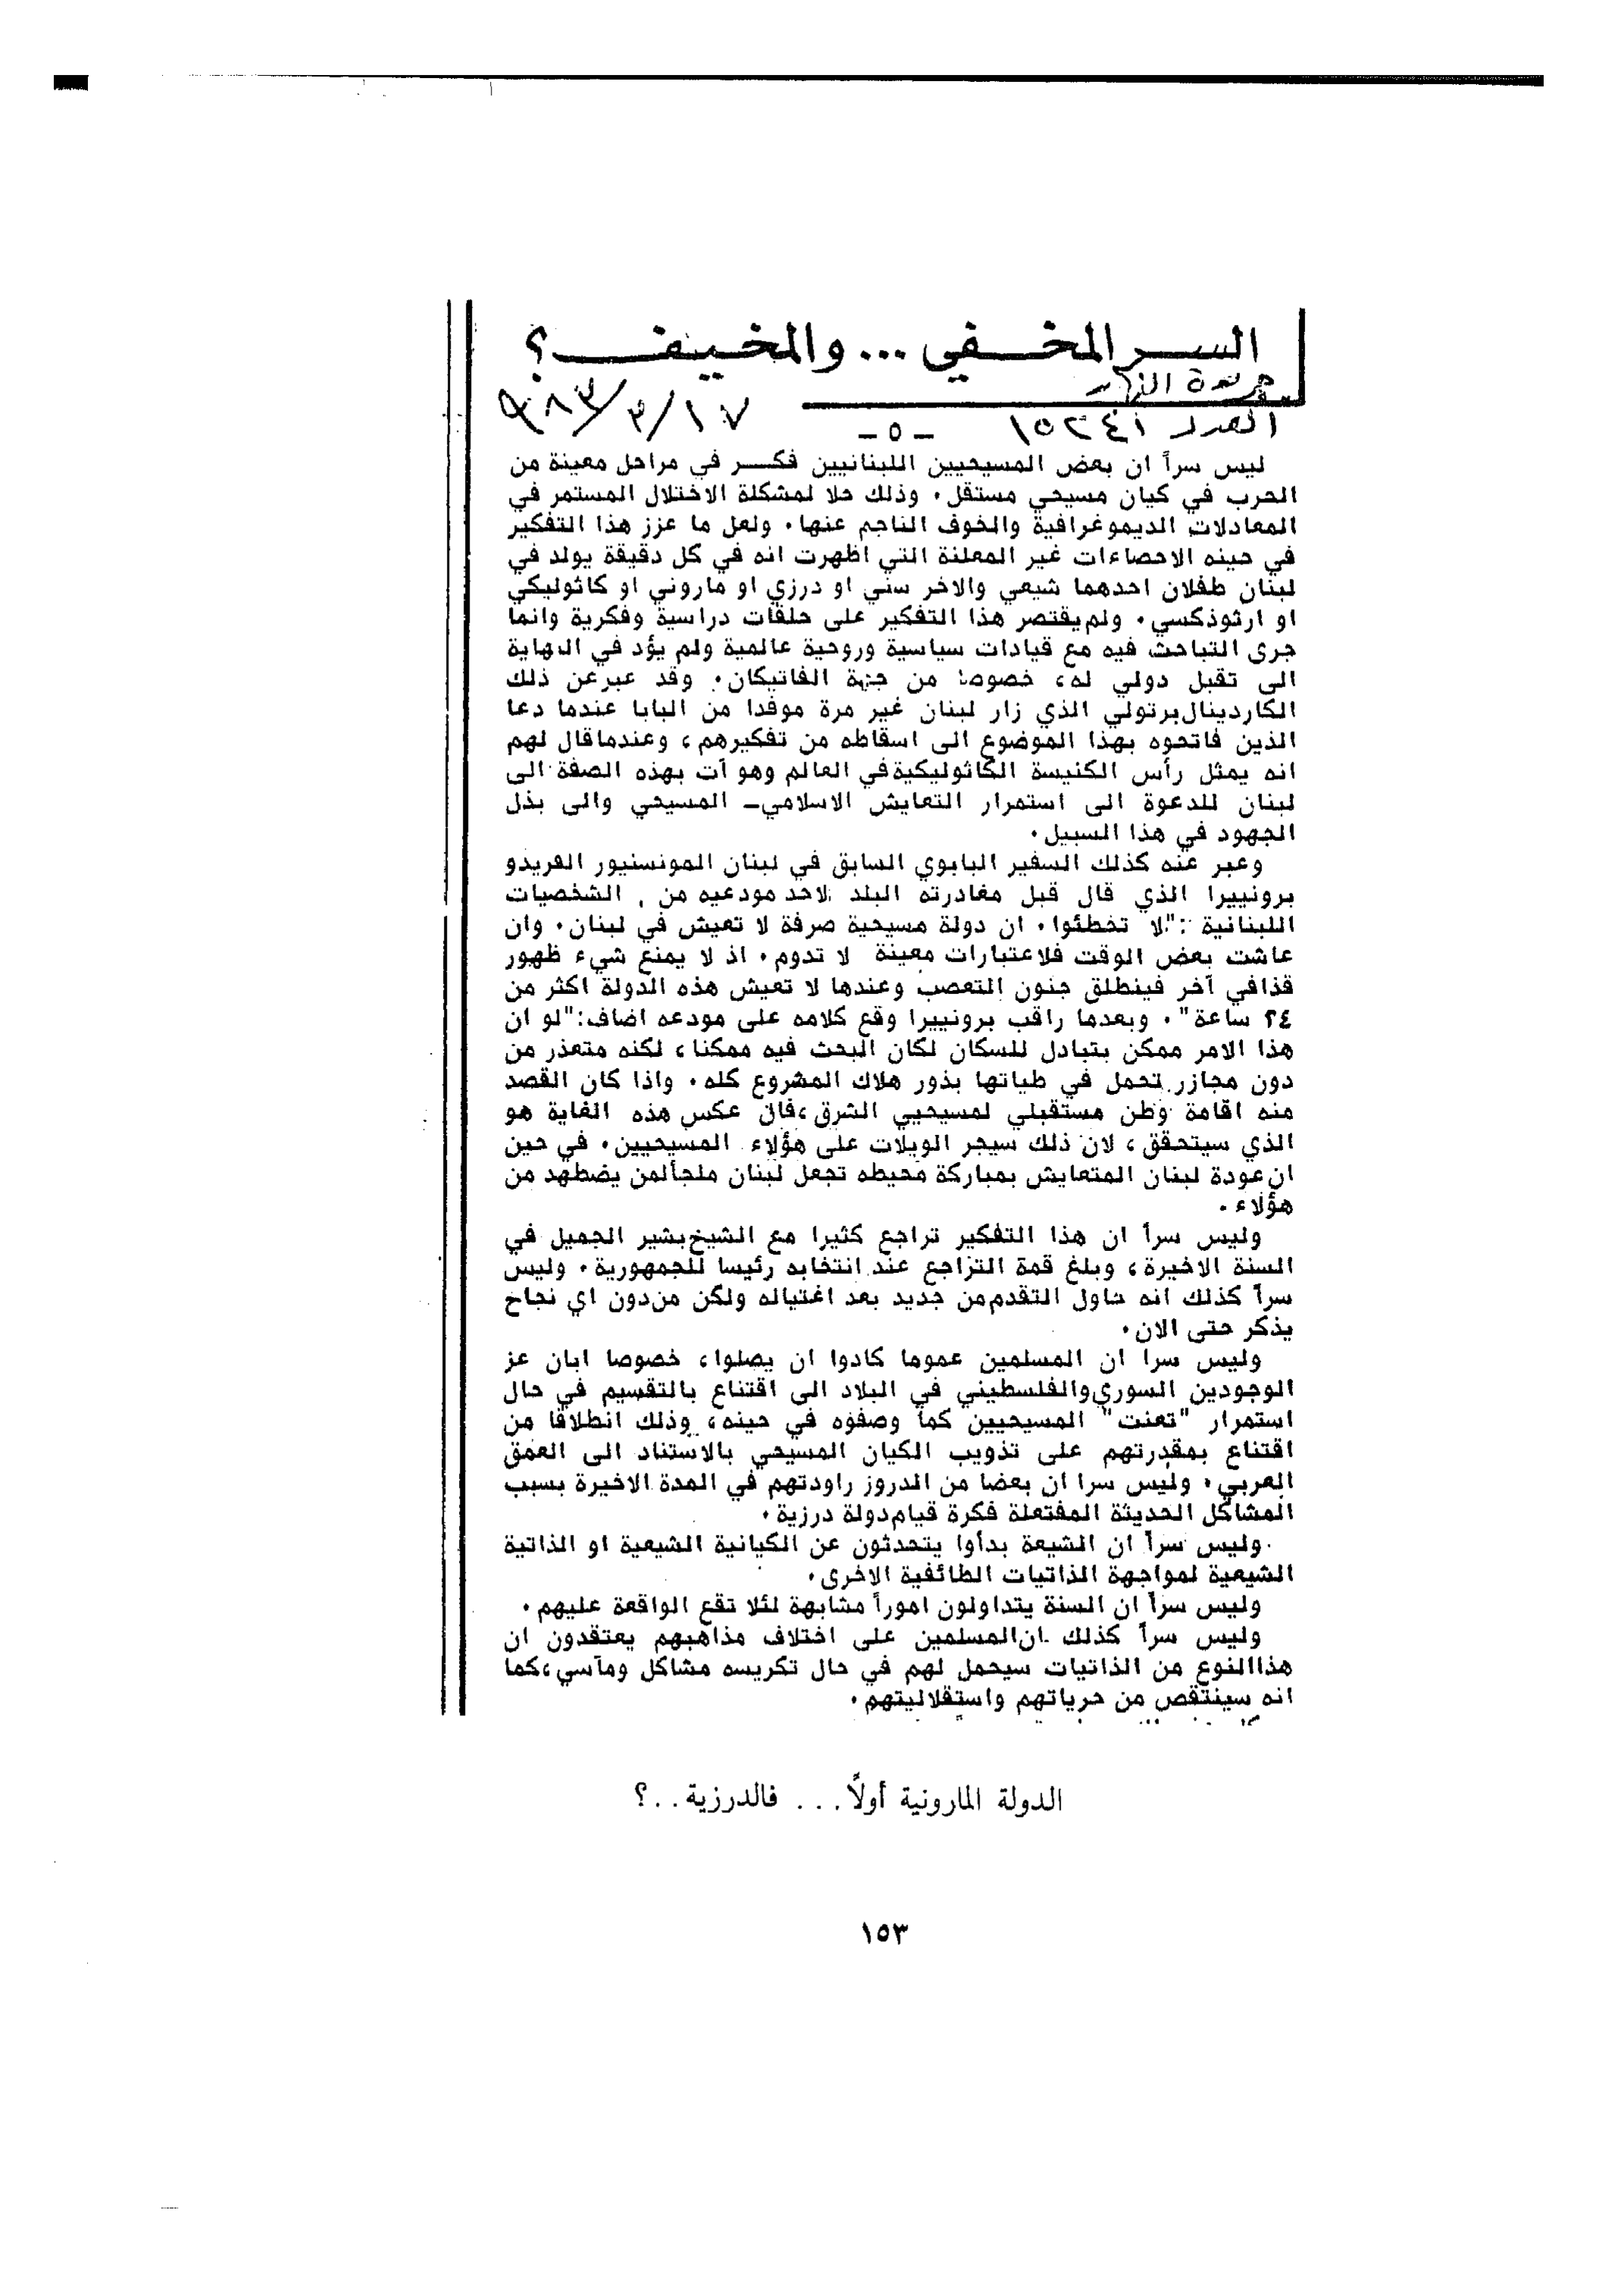 السر المخفي ... والمخيف ؟
جريدة النهار
العدد ١٥٢٤١ ٩٨٣/٣/١٧
- ٥ -
ليس سراً ان بعض المسيحيين اللبنانيين فكر في مراحل معينة من
الحرب في كيان مسيحي مستقل. وذلك حلا لمشكلة الاختلال المستمر في
المعادلات الديموغرافية والخوف الناجم عنها. ولعل ما عزز هذا التفكير
في حينه الاحصاءات غير المعلنة التي اظهرت انه في كل دقيقة يولد في
لبنان طفلان احدهما شيعي والاخر سني او درزي او ماروني او كاثوليكي
او ارثوذكسي. ولم يقتصر هذا التفكير على حلقات دراسية وفكرية وانما
جرى التباحث فيه مع قيادات سياسية وروحية عالمية ولم يؤد في النهاية
الى تقبل دولي له، خصوصا من جهة الفاتيكان. وقد عبر عن ذلك
الكاردينال برتولي الذي زار لبنان غير مرة موفدا من البابا عندما دعا
الذين فاتحوه بهذا الموضوع الى اسقاطه من تفكيرهم، وعندما قال لهم
انه يمثل رأس الكنيسة الكاثوليكية في العالم وهو آت بهذه الصفة الى
لبنان للدعوة الى استمرار التعايش الاسلامي - المسيحي والى بذل
الجهود في هذا السبيل.
وعبر عنه كذلك السفير البابوي السابق في لبنان المونسنيور الفريدو
برونييرا الذي قال قبل مغادرته البلد لاحد مودعيه من الشخصيات
اللبنانية :"لا تخطئوا. ان دولة مسيحية صرفة لا تعيش في لبنان. وان
عاشت بعض الوقت فلاعتبارات معينة لا تدوم. اذ لا يمنع شيء ظهور
قذافي آخر فينطلق جنون التعصب وعندها لا تعيش هذه الدولة اكثر من
٢٤ ساعة". وبعدما راقب برونييرا وقع كلامه على مودعه اضاف:"لو ان
هذا الامر ممكن بتبادل للسكان لكان البحث فيه ممكنا، لكنه متعذر من
دون مجازر تحمل في طياتها بذور هلاك المشروع كله. واذا كان القصد
منه اقامة وطن مستقبلي لمسيحيي الشرق، فان عكس هذه الغاية هو
الذي سيتحقق، لان ذلك سيجر الويلات على هؤلاء المسيحيين. في حين
ان عودة لبنان المتعايش بمباركة محيطه تجعل لبنان ملجألمن يضطهد من
هؤلاء.
وليس سراً ان هذا التفكير تراجع كثيرا مع الشيخ بشير الجميل في
السنة الاخيرة، وبلغ قمة التراجع عند انتخابه رئيسا للجمهورية. وليس
سراً كذلك انه حاول التقدم من جديد بعد اغتياله ولكن من دون اي نجاح
يذكر حتى الان.
وليس سرا ان المسلمين عموما كادوا ان يصلوا، خصوصا ابان عز
الوجودين السوري والفلسطيني في البلاد الى اقتناع بالتقسيم في حال
استمرار "تعنت" المسيحيين كما وصفوه في حينه، وذلك انطلاقا من
اقتناع بمقدرتهم على تذويب الكيان المسيحي بالاستناد الى العمق
العربي. وليس سرا ان بعضا من الدروز راودتهم في المدة الاخيرة بسبب
المشاكل الحديثة المفتعلة فكرة قيام دولة درزية.
وليس سراً ان الشيعة بدأوا يتحدثون عن الكيانية الشيعية او الذاتية
الشيعية لمواجهة الذاتيات الطائفية الاخرى.
وليس سراً ان السنة يتداولون اموراً مشابهة لئلا تقع الواقعة عليهم.
وليس سراً كذلك ان المسلمين على اختلاف مذاهبهم يعتقدون ان
هذا النوع من الذاتيات سيحمل لهم في حال تكريسه مشاكل ومآسي، كما
انه سينتقص من حرياتهم واستقلاليتهم.
الدولة المارونية أولاً ... فالدرزية ..؟
١٥٣